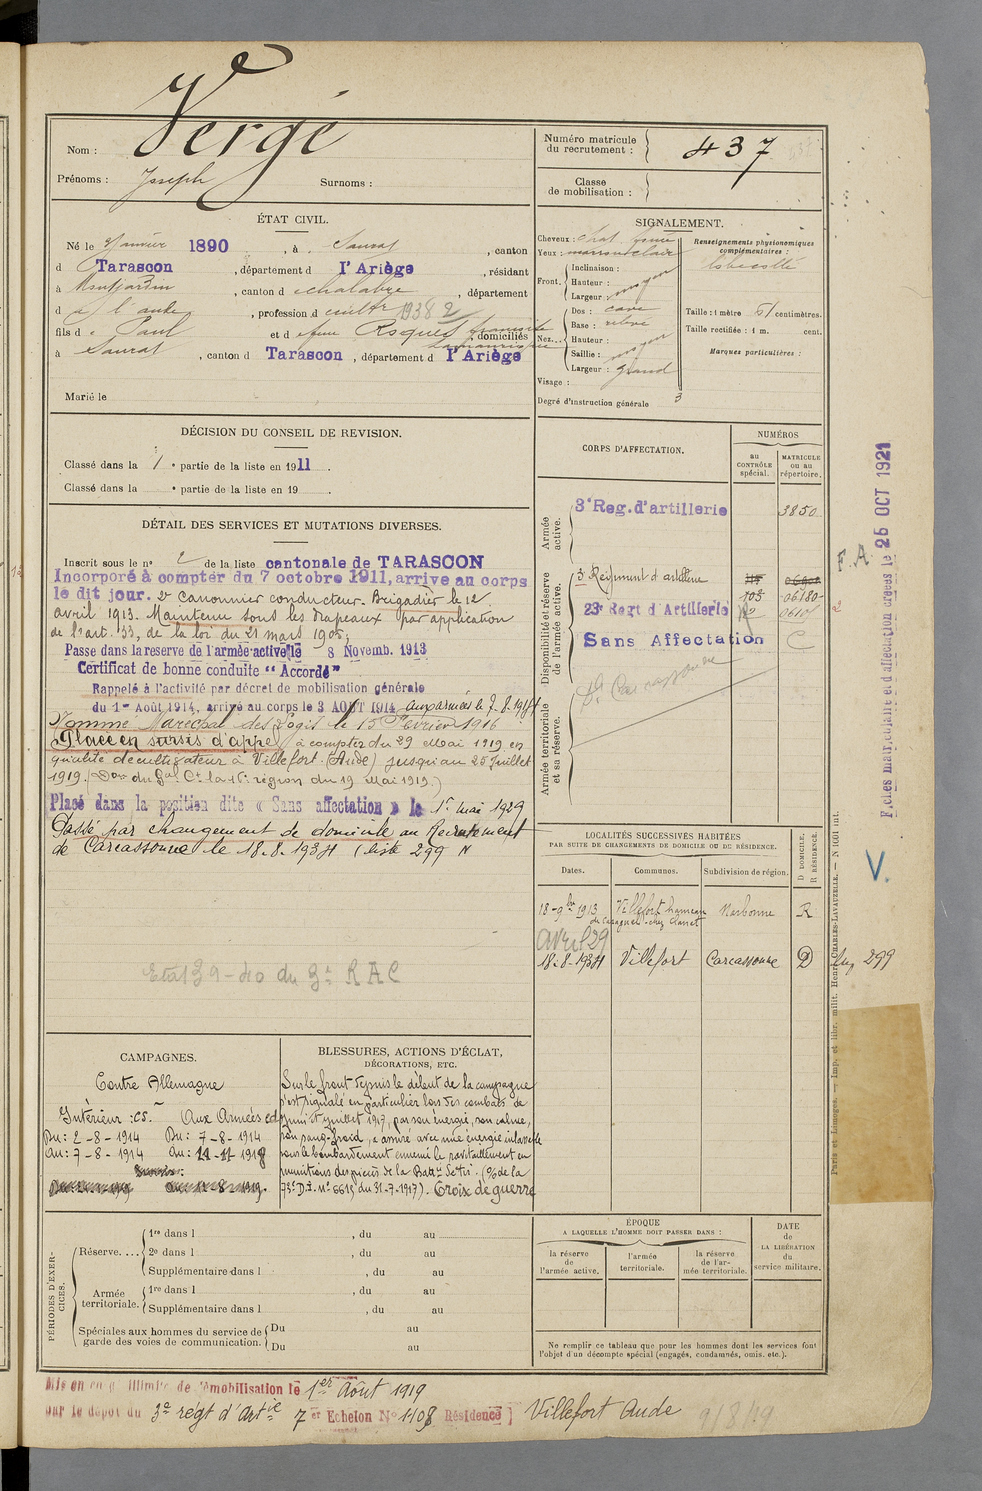 Nom : Vergé
Prénoms : Joseph Surnoms :
Numéro matricule du recrutement : 437
Classe de mobilisation :
ÉTAT CIVIL.
Né le janvier 1890, à Saurat, canton
d Tarascon, département d l'Ariège, résidant
à Montjardin, canton d e chalabre, département
d e l'aude, profession d cultr 1938 2
fils d e Paul et d e feue Roques françoise, domiciliés
à Saurat, canton d Tarascon, département d l'Ariège
Marié le
SIGNALEMENT.
Cheveux : chat foncé
Yeux : marron clair
Front. Inclinaison :
Hauteur : moyen
Largeur :
Nez... Dos : cave
Base : relevé
Hauteur :
Saillie : moyen
Largeur : grand
Visage :
Renseignements physionomiques complémentaires :
Taille : 1 mètre 61 centimètres.
Taille rectifiée : 1 m. cent.
Marques particulières :
Degré d'instruction générale 3
DÉCISION DU CONSEIL DE REVISION.
Classé dans la 1 e partie de la liste en 1911.
Classé dans la e partie de la liste en 19 .
DÉTAIL DES SERVICES ET MUTATIONS DIVERSES.
Inscrit sous le n° 2 de la liste cantonale de TARASCON
Incorporé à compter du 7 octobre 1911, arrive au corps
le dit jour. 2e Canonnier conducteur. Brigadier le 12
avril 1913. Maintenu sous les drapeaux par application
de l'art. 33, de la loi du 21 mars 1905,
Passé dans la réserve de l'armée active le 8 Novemb. 1913
Certificat de bonne conduite "Accordé"
Rappelé à l'activité par décret de mobilisation générale
du 1er Août 1914, arrivé au corps le 3 AOUT 1914 aux armées le 7.8.1914
Nommé Maréchal des Logis le 15 Février 1916
Placé en sursis d'appel à compter du 29 Mai 1919 en
qualité de cultivateur à Villefort (Aude) jusqu'au 25 Juillet
1919. (Don du Gal Ct la 16e région du 19 Mai 1919)
Placé dans la position dite « Sans affectation » le 1er mai 1929
Passé par changement de domicile au Recrutement
de Carcassonne le 18.8.1934 (liste 299 N
Etat 39-40 du 3e R A C
CORPS D'AFFECTATION.
NUMÉROS
AU CONTRÔLE spécial.
MATRICULE OU AU répertoire.
Armée active.
3e Reg. d'artillerie 3850
Disponibilité et réserve de l'armée active.
3e Régiment d'artillerie
103 06180
23e Regt d'Artillerie
Sans Affectation C
Dt Carcassonne
Armée territoriale et sa réserve.
LOCALITÉS SUCCESSIVES HABITÉES
PAR SUITE DE CHANGEMENTS DE DOMICILE OU DE RÉSIDENCE.
Dates. Communes. Subdivision de région. D DOMICILE. R RÉSIDENCE.
18-9bre 1913 Villefort hameau Narbonne R
avril 29
18-8-1934 Villefort Carcassonne D 299
CAMPAGNES.
Contre Allemagne
Intérieur : CS. Aux Armées cd
Du : 2-8-1914 Du : 7-8-1914
Au : 7-8-1914 Au : 11-11-1918
BLESSURES, ACTIONS D'ÉCLAT,
DÉCORATIONS, ETC.
Sur le front depuis le début de la campagne
s'est signalé en particulier lors des combats de
juin et juillet 1917, par son énergie, son calme,
son sang-froid, a assuré avec une énergie inlassable
sous le bombardement ennemi le ravitaillement en
munitions des pièces de la Batie
73e D.I. N° 6615 du 31-7-1917). Croix de guerre
PÉRIODES D'EXERCICES.
Réserve.... 1re dans l , du au
2e dans l , du au
Supplémentaire dans l , du au
Armée territoriale. 1re dans l , du au
Supplémentaire dans l , du au
Spéciales aux hommes du service de garde des voies de communication. Du au
Du au
ÉPOQUE
A LAQUELLE L'HOMME DOIT PASSER DANS :
la réserve de l'armée active.
l'armée territoriale.
la réserve de l'armée territoriale.
DATE DE LA LIBÉRATION du service militaire.
Ne remplir ce tableau que pour les hommes dont les services font
l'objet d'un décompte spécial (engagés, condamnés, omis, etc.).
Mis en congé illimité de démobilisation le 1er Août 1919
par le dépôt du 3e régt d'artie 7er Echelon N° 1408 Résidence Villefort Aude 9/8/19
F.A.
Fiches matriculaire et d'affectation créées le 25 OCT 1921
V.
Paris et Limoges. — Imp. et libr. milit. Henri CHARLES-LAVAUZELLE. — N° 1001 int.